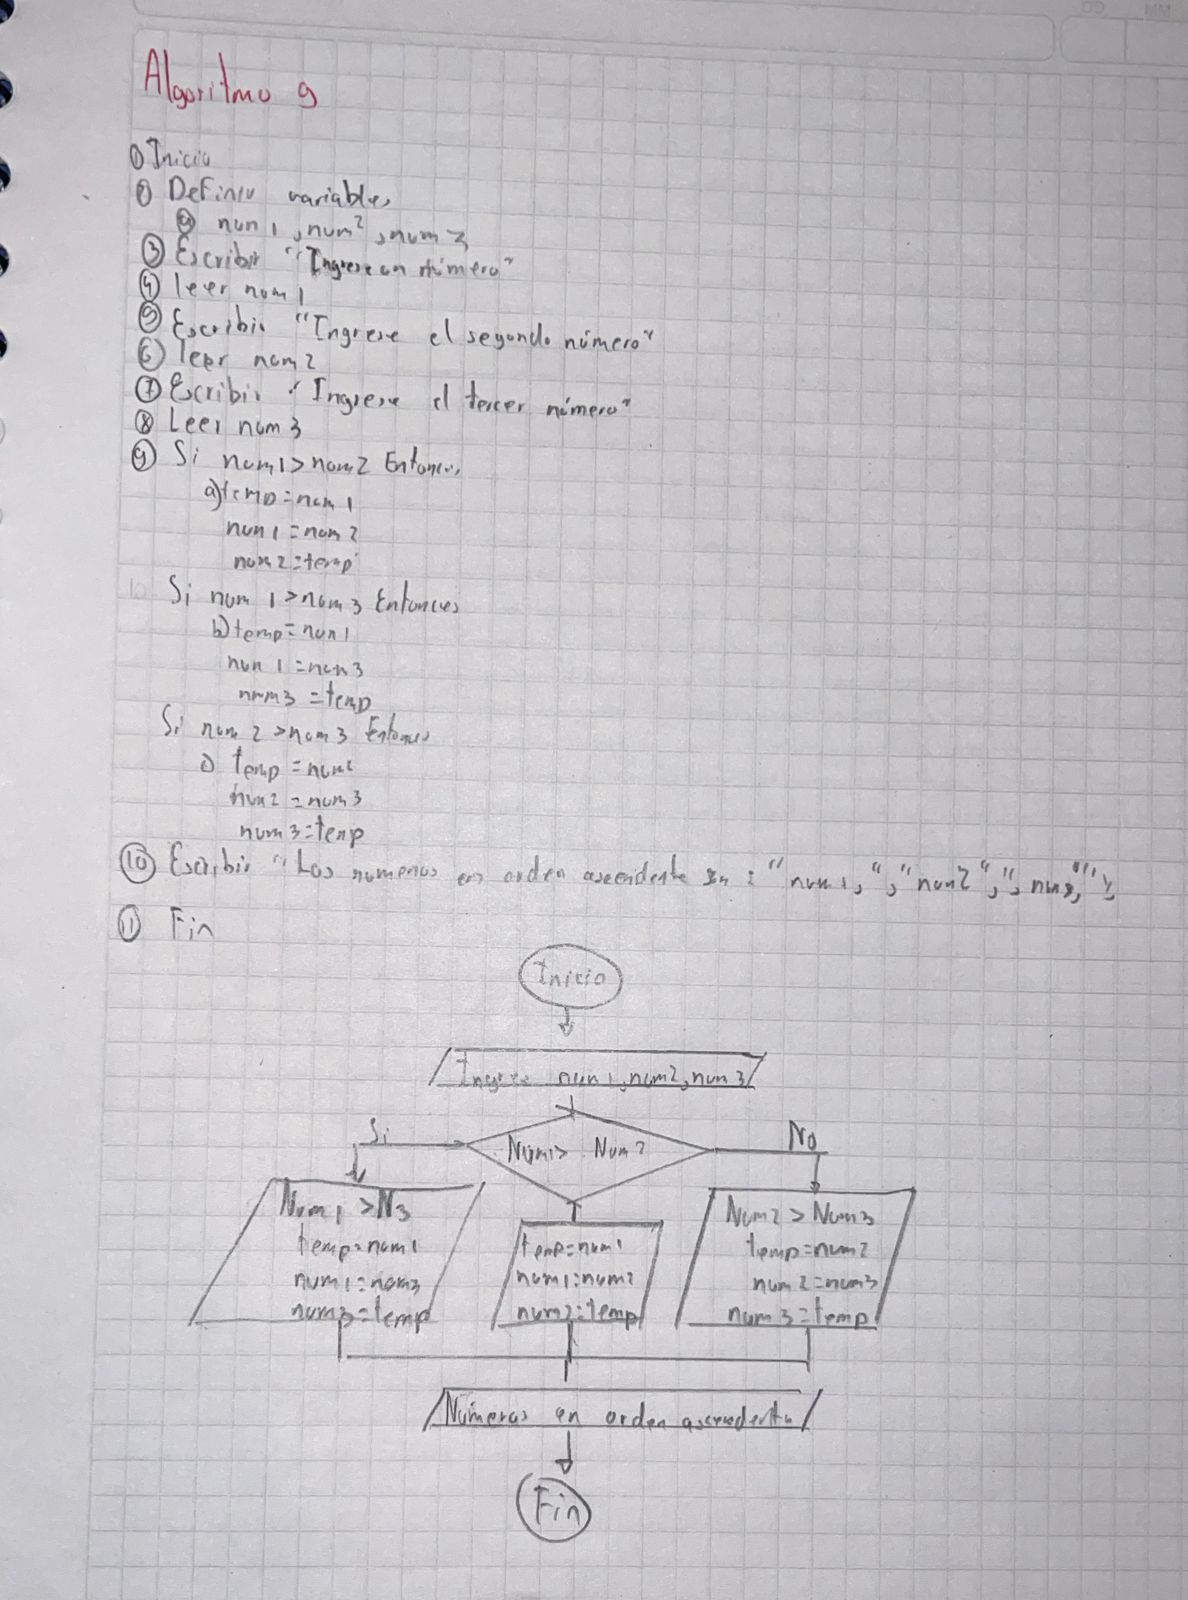 DD MM
Algoritmo 9
① Inicio
② Definir variables
ⓐ num1, num2, num3
③ Escribir "Ingrese un número"
④ leer num1
⑤ Escribir "Ingrese el segundo número"
⑥ leer num2
⑦ Escribir "Ingrese el tercer número"
⑧ Leer num3
⑨ Si num1>num2 Entonces
a) temp=num1
num1=num2
num2=temp
10 Si num1>num3 Entonces
b) temp=num1
num1=num3
num3=temp
Si num2>num3 Entonces
c) temp=num2
num2=num3
num3=temp
⑩ Escribir "Los numeros en orden ascendente son: " num1, ", "num2", ", num3,
⑪ Fin
Inicio
Ingrese num1, num2, num3
Si Num1> Num2 No
Num1 >N3
temp=num1
num1=num3
num3=temp
temp=num1
num1=num2
num2=temp
Num2 > Num3
temp=num2
num2=num3
num3=temp
Números en orden ascendente
Fin